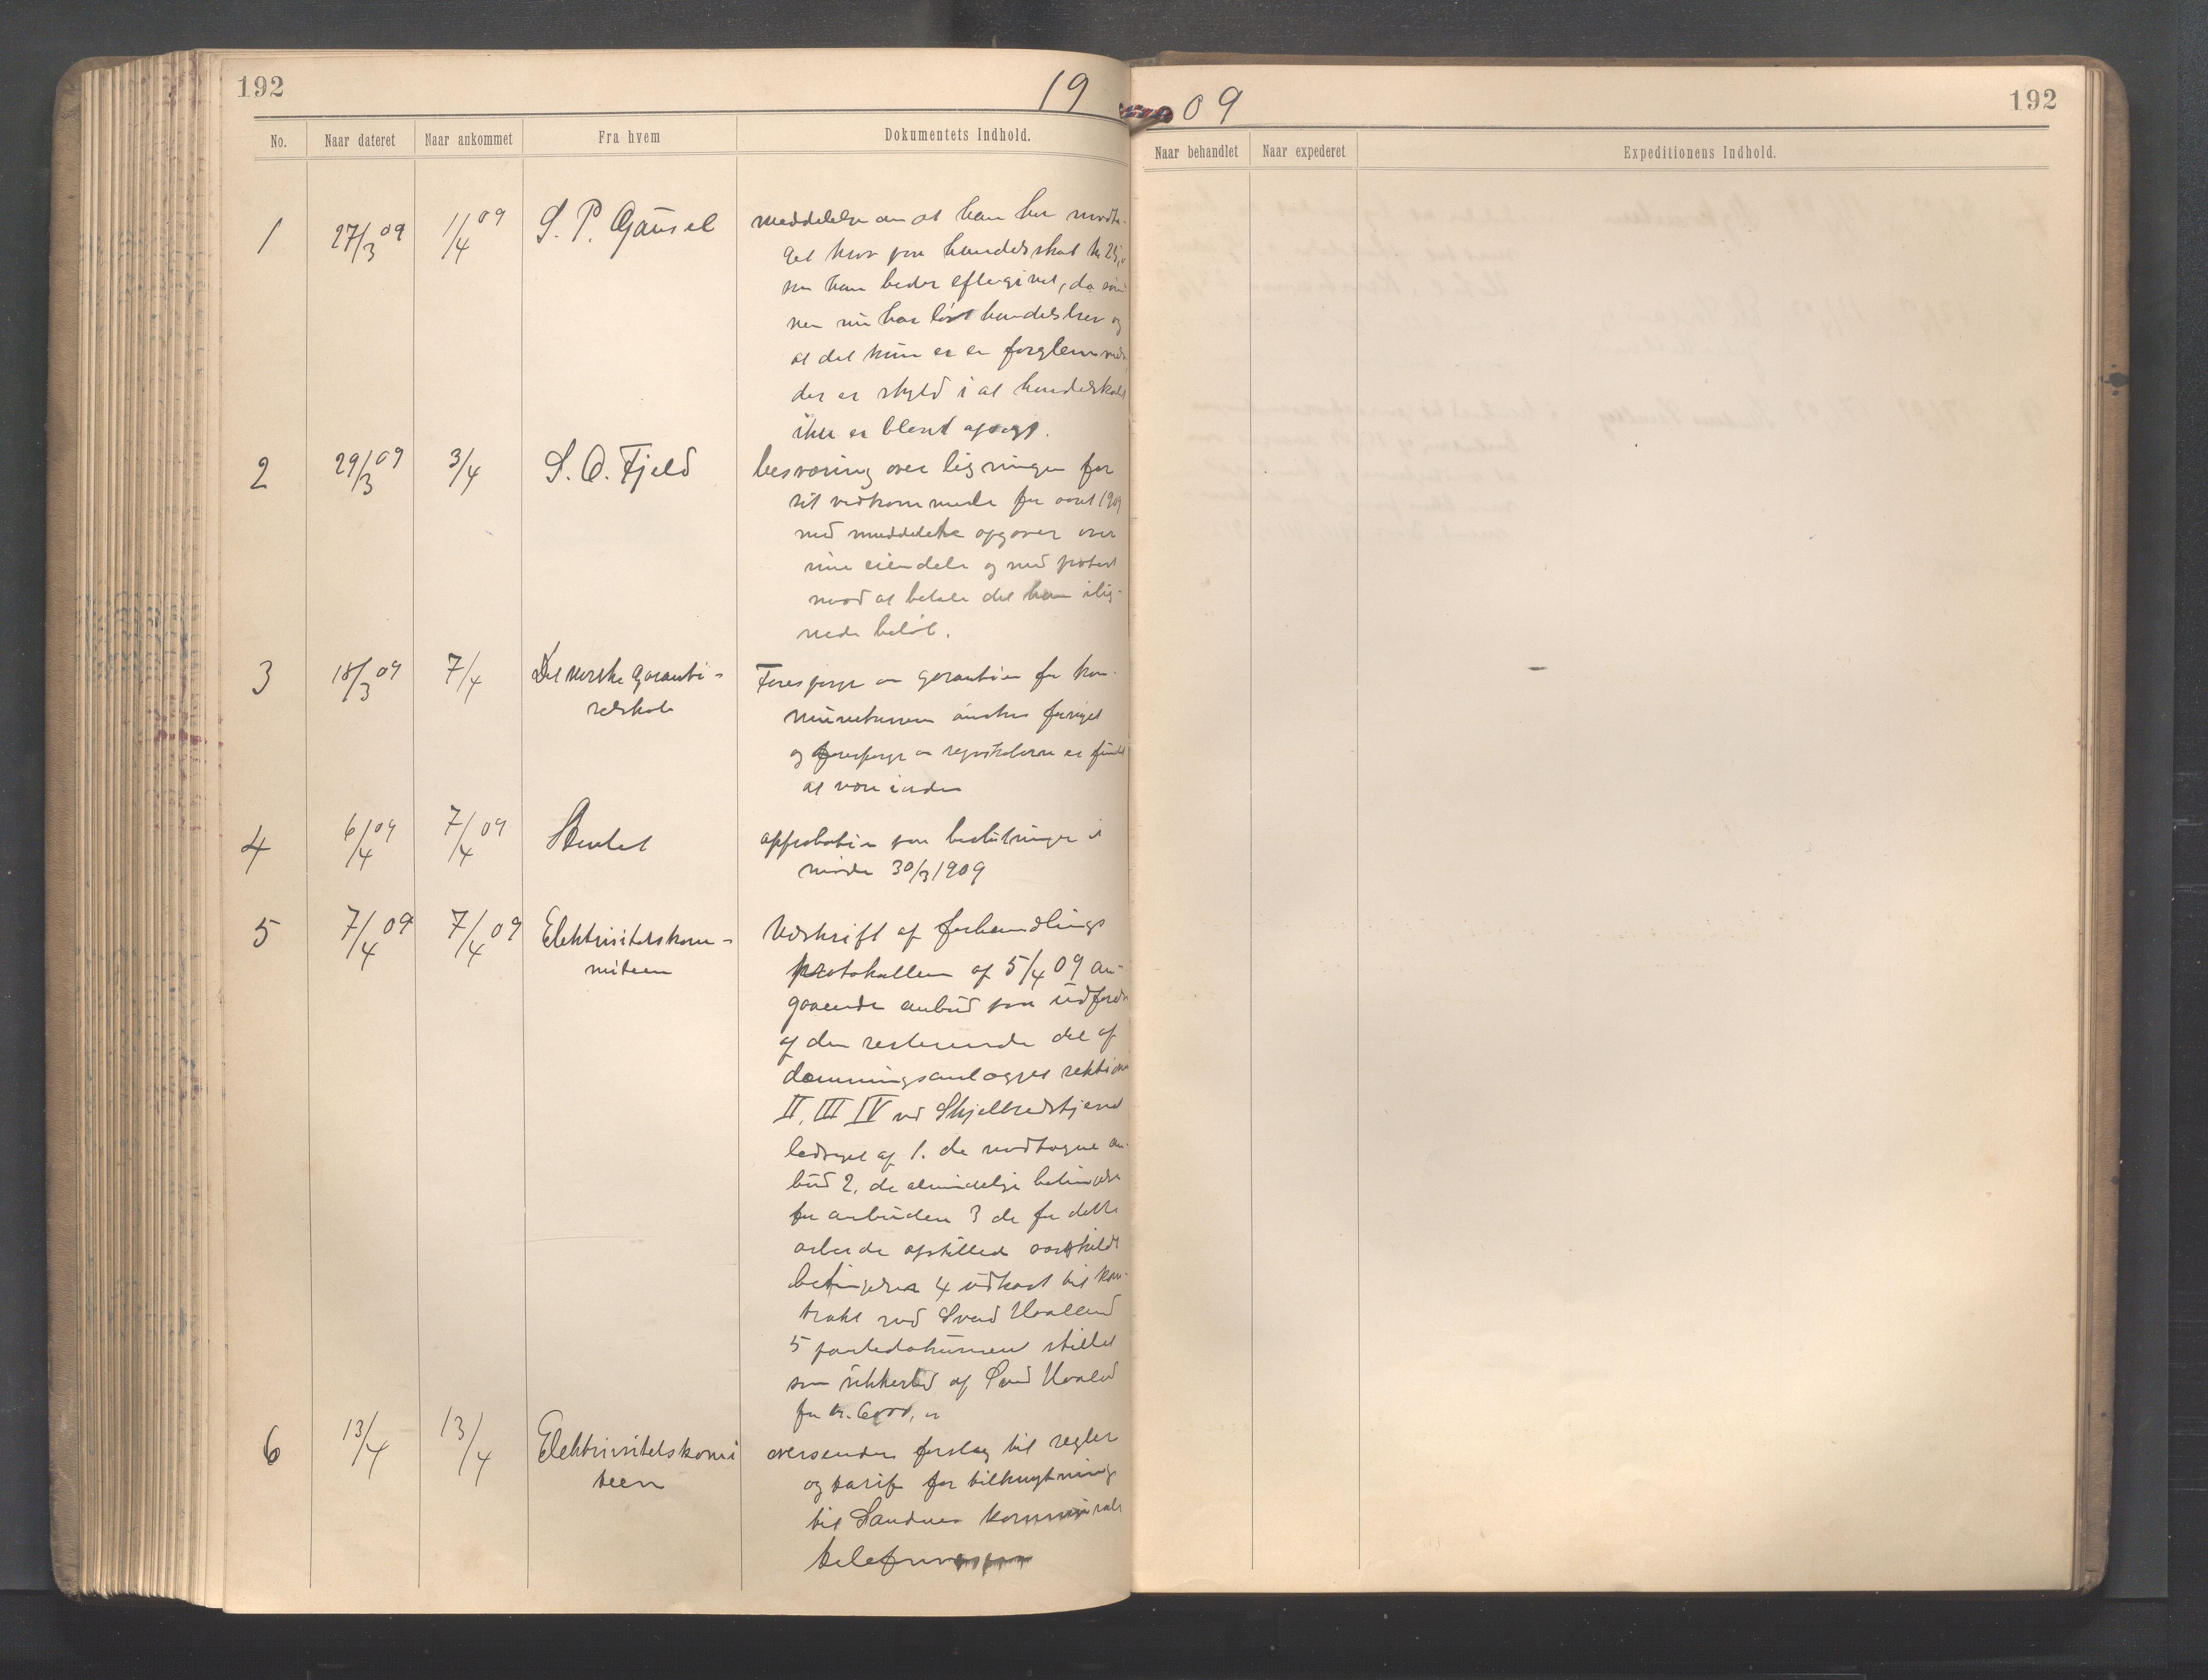 192
19
09
192
No. Naar dateret Naar ankommet Fra hvem Dokumentets Indhold.
Naar behandlet Naar expederet Expeditionens Indhold.
1 27/3 09 1/4 09 S. P. Gausel meddelelse om at han har modta-
get krav paa hundeskat kr 25,
som han beder eftergivet, da
nu har løst handelsbrev og
at det kun er en forglemmelse
der er skyld i at hundeskat
ikke er blevet
2 29/3 09 3/4 S. O. Fjeld besværing over ligningen for
sit vedkommende for aaret 1909
med meddelelse opgaver over
sine eiendele og med protest
mod at betale det ham ilig-
nede beløb.
3 18/3 09 7/4 Det norske garanti-
selskab
Forespørger om garantien for kom-
ønskes fornyet
og forespørger om er fundet
at være i orden
4 6/4 09 7/4 09 Amtet approbation paa beslutninger i
møde 30/3 1909
5 7/4 09 7/4 09 Elektrisitetskom-
miteen
Udskrift af forhandlings
protokollen af 5/4 09 an-
gaaende anbud paa udførelse
af den resterende del af
dæmningsanlægget sektion
II, III IV ved
ledsaget af 1. de modtagne an-
bud 2. de almindelige betingelser
for anbuden 3 de for dette
arbeide opstillede særskildte
betingelser 4 udkast til kon-
trakt med Svend Haaland
5 stillet
som sikkerhed af Svend Haaland
for kr. 6000,
6 13/4 13/4 Elektrisitetskomi
teen
oversender forslag til regler
og tarif for tilknytning
til Sandnes kommunale
telefon